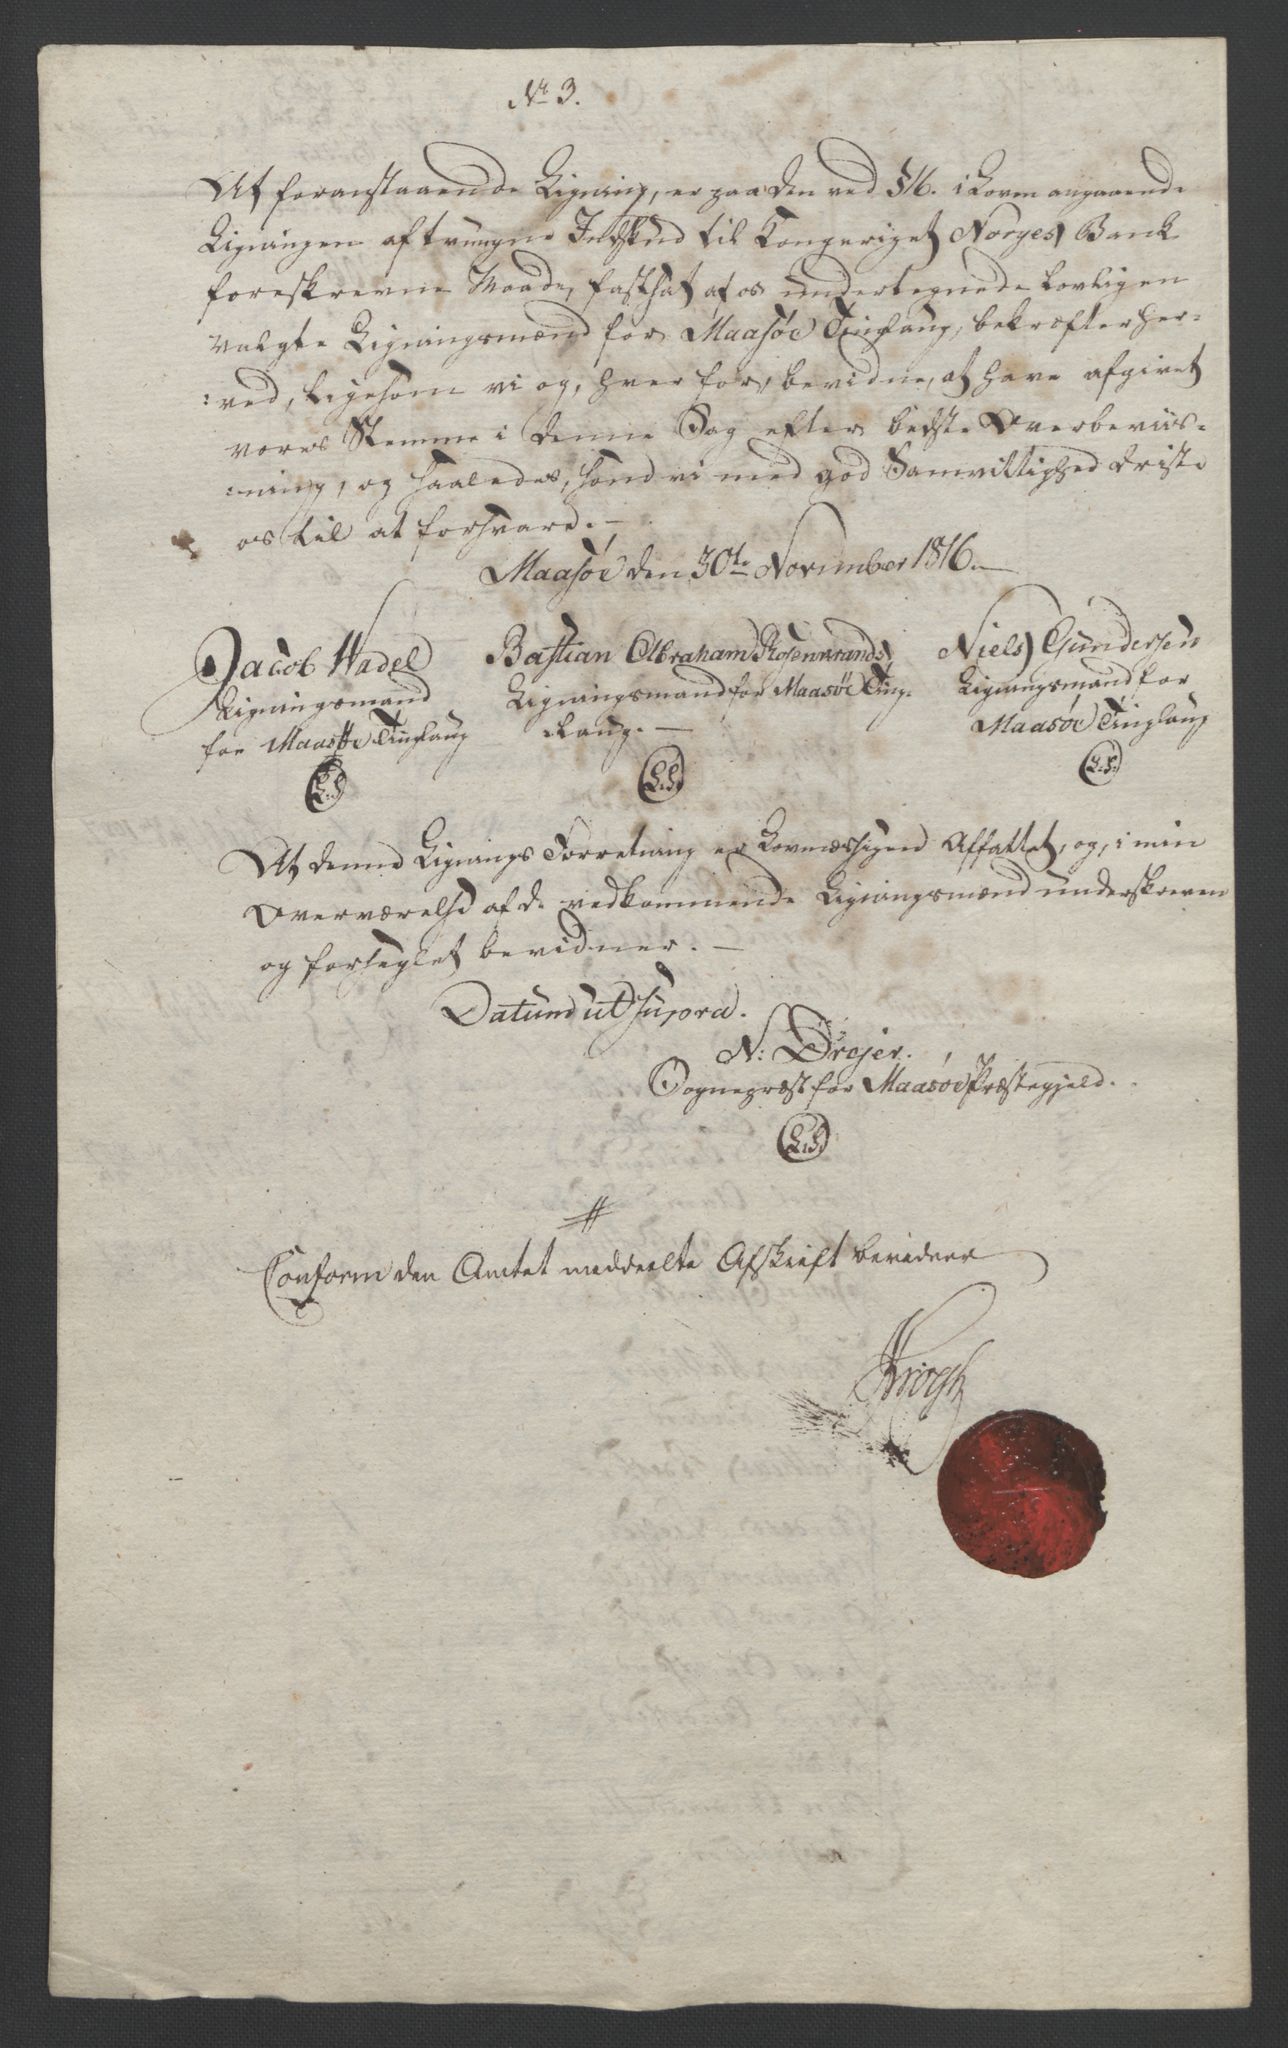 No 3.
At foranstaaende Ligning, er paa den ved §16. i Loven angaaende
Ligningen af tvungne Indskud til Kongeriget Norges Bank
foreskrevne Maade, fastsat af os undertegnede lovligen
valgte Ligningsmænd for Maasøe Tinglaug, bekræfter her-
:ved, ligesom vi og, hver for, bevidne, at have afgivet
vores Stemme i denne Sag efter bedste Overbeviis-
:ning, og saaledes, som vi med god Samvittighed driste
os til at forsvare.
Maasøe den 30te November 1816.
Jacob Wadel Bastian Abraham Rosenvrands Niels Gundersen
Ligningsmand Ligningsmand for Maasøe Ting- Ligningsmand for
for Maasøe Tinglaug laug. Maasøe Tinglaug
L.S. L.S. L.S.
At denne Lignings Forretning er Lovmæssigen Affattet, og, i min
Overværelse af de vedkommende Ligningsmænd underskreven
og forseglet bevidner.
Datum ut supra.
N: Drejer.
Sognepræst for Maasøe Præstegjeld.
L.S.
Conform den Amtet meddeelte Afskrift bevidner
Krogh